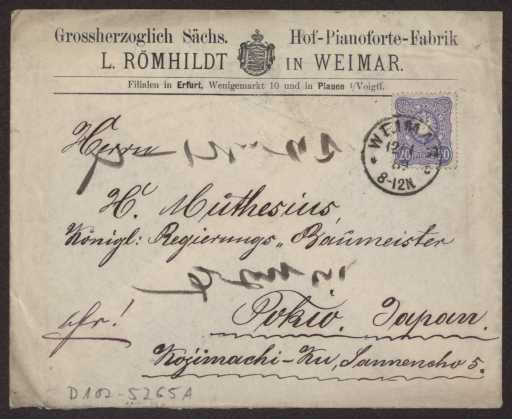 Grossherzoglich Sächs. Hof-Pianoforte-Fabrik
L. RÖMHILDT IN WEIMAR.
Filialen in Erfurt, Wenigemarkt 10 und in Plauen i/Voigtl.
WEIMAR
8-12N.
20 20
Herrn
H. Muthesius,
Königl: Regierungs-Baumeister
Tokio. Japan.
Kojimachi-Ku, Sannencho 5.
D102-5265A